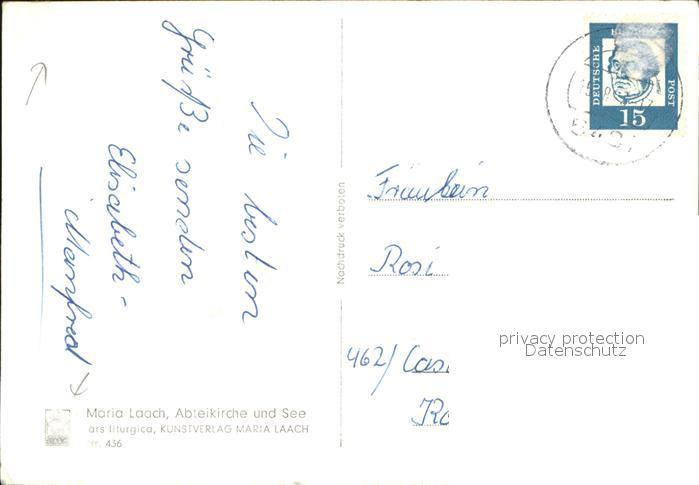 Die besten
Grüße senden
Elisabeth-
Manfred
Nachdruck verboten
DEUTSCHE
POST
15
Fräulein
Rosi
462/ Cas
privacy protection
Datenschutz
Maria Laach, Abteikirche und See
ars liturgica, KUNSTVERLAG MARIA LAACH
Nr. 436